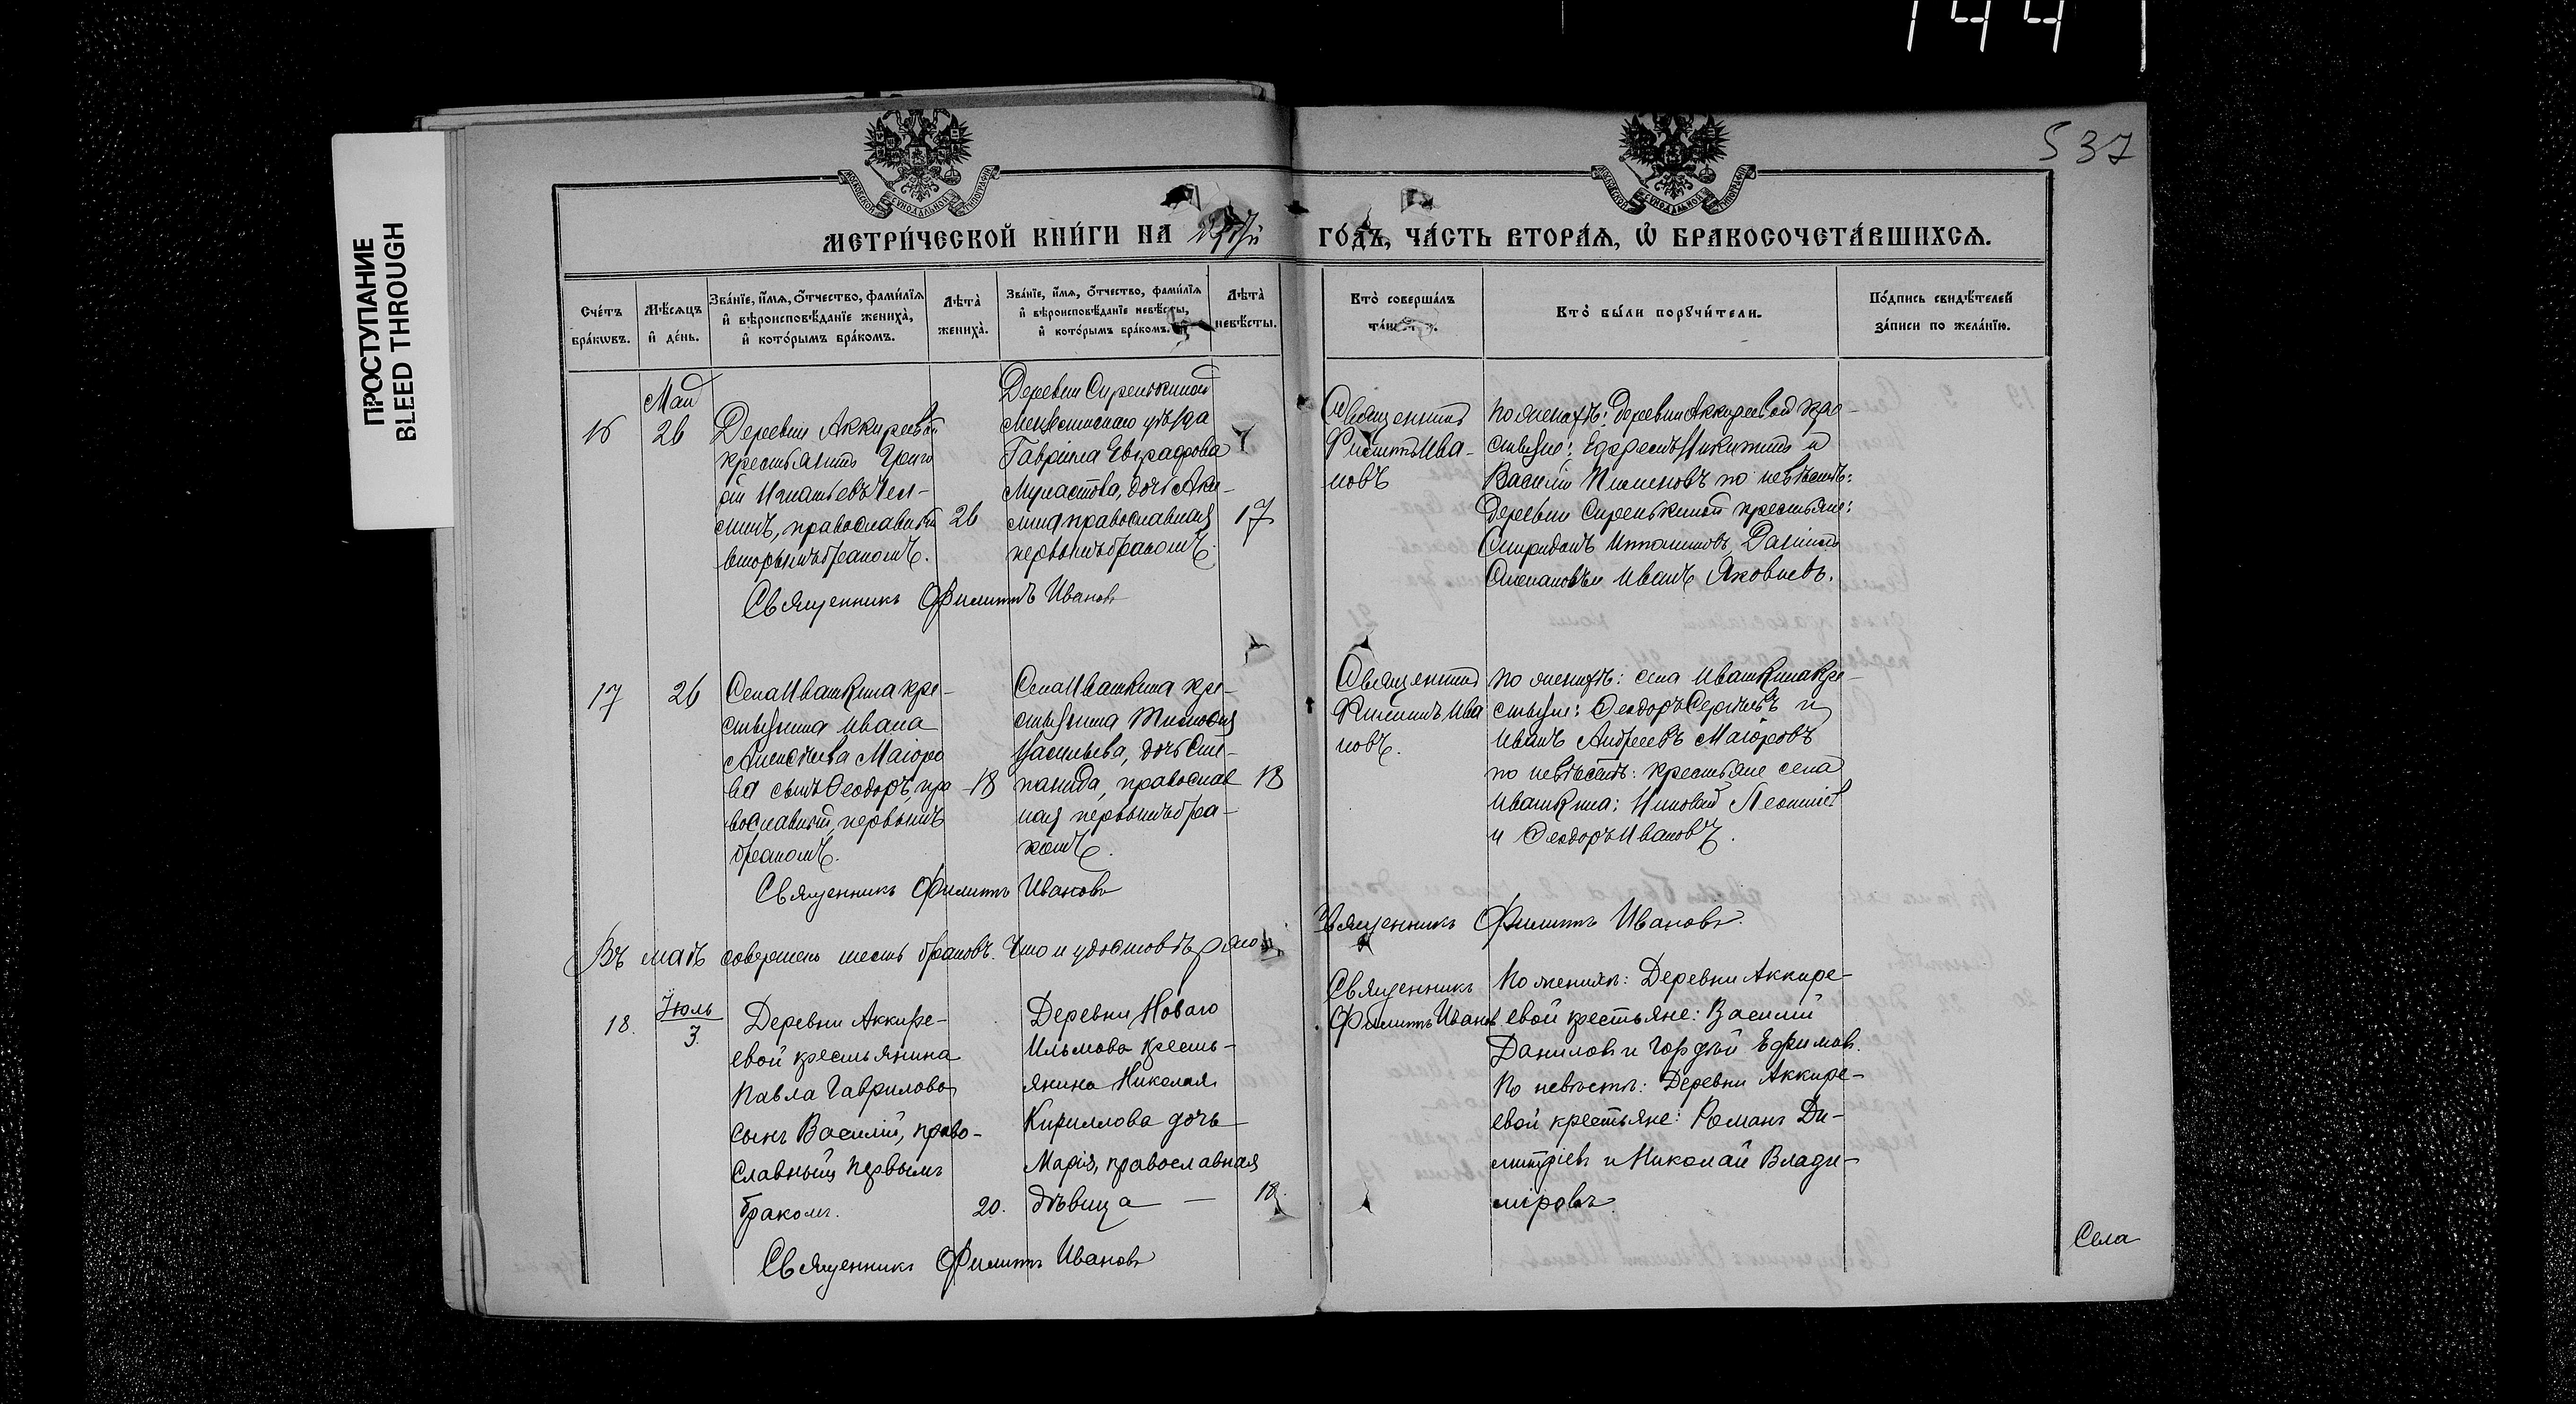 144
537
ПРОСТУПАНИЕ
BLEED THROUGH
МЕТРИ́ЧЕСКОЙ КНИ́ГИ НА
ГО́ДЪ, ЧА́СТЬ ВТОРА́Я, Ѡ БРАКОСОЧЕТА́ВШИХСЯ.
Сче́тъ
бра́кѡвъ.
Мѣ́сяцъ
и҆ де́нь.
Зва́нїе, и҆́мя, ѻ҆́тчество, фами́лїя
и҆ вѣроисповѣ́данїе жениха̀,
и҆ кото́рымъ бра́комъ.
Лѣта̀
жениха̀.
Зва́нїе, и҆́мя, ѻ҆́тчество, фами́лїя
и҆ вѣроисповѣ́данїе невѣ́сты,
и҆ кото́рымъ бра́комъ.
Лѣта̀
невѣ́сты.
Кто̀ соверша́лъ
Кто̀ бы́ли порꙋчи́тели.
По́дпись свидѣ́телей
за́писи по жела́нїю.
16
Май
26
Деревни Аккиревой
крестьянинъ
православный
вторымъ бракомъ.
26
Деревни Сиренькиной
уѣзда
Гаврiила Евграфова
дочь
православная
первымъ бракомъ.
17
Священникъ
Филиппъ Ива-
новъ
По женихѣ: деревни Аккиреевой кре-
стьяне: Никитинъ и
Василій Пименовъ по невѣстѣ:
деревни Сиренькиной крестьяне:
Спиридонъ Даніилъ
Степановъ и Иванъ Яковлевъ.
Священникъ Филиппъ Ивановъ
17
26
Села Ивашкина кре-
стьянина Ивана
Алексѣева Маіоро
ва сынъ Ѳеодоръ, пра
вославный, первымъ
бракомъ.
18
Села Ивашкина кре-
стьянина
Васильева, дочь Сте-
панида, православ
ная первымъ бра-
комъ.
18
Священникъ
Филиппъ Ива
новъ.
По женихѣ: села Ивашкина кре-
стьяне: Ѳеодоръ Сергѣевъ и
Иванъ Андреевъ Маіоровъ
по невѣстѣ: крестьяне села
Ивашкина: Николай Леонтіев
и Ѳеодоръ Ивановъ.
Священникъ Филиппъ Ивановъ
Въ маѣ совершено шесть браковъ. Что и удостовѣряю
Священникъ Филиппъ Ивановъ.
18.
Іюль
3.
Деревни Аккире-
евой крестьянина
Павла Гаврилова
сынъ Василій, право-
славный первымъ
бракомъ.
20.
Деревни Новаго
Ильмова кресть-
янина Николая
Кириллова дочь
Марія, православная
дѣвица —
18.
Священникъ
Филиппъ Ивановъ
По женихѣ: Деревни Аккире-
евой крестьяне: Василій
Даниловъ и Гордѣй Ефимовъ.
По невѣстѣ: Деревни Аккире-
евой крестьяне: Романъ Ди-
митріевъ и Николай Влади-
міровъ.
Священникъ Филиппъ Ивановъ
Села